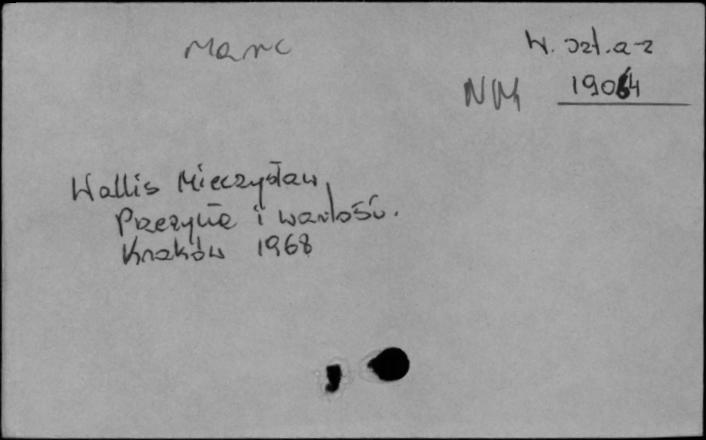 Marc
W. szt. a-z
NM 19064
Wallis Mieczysław
Przeżycie i wartość.
Kraków 1968